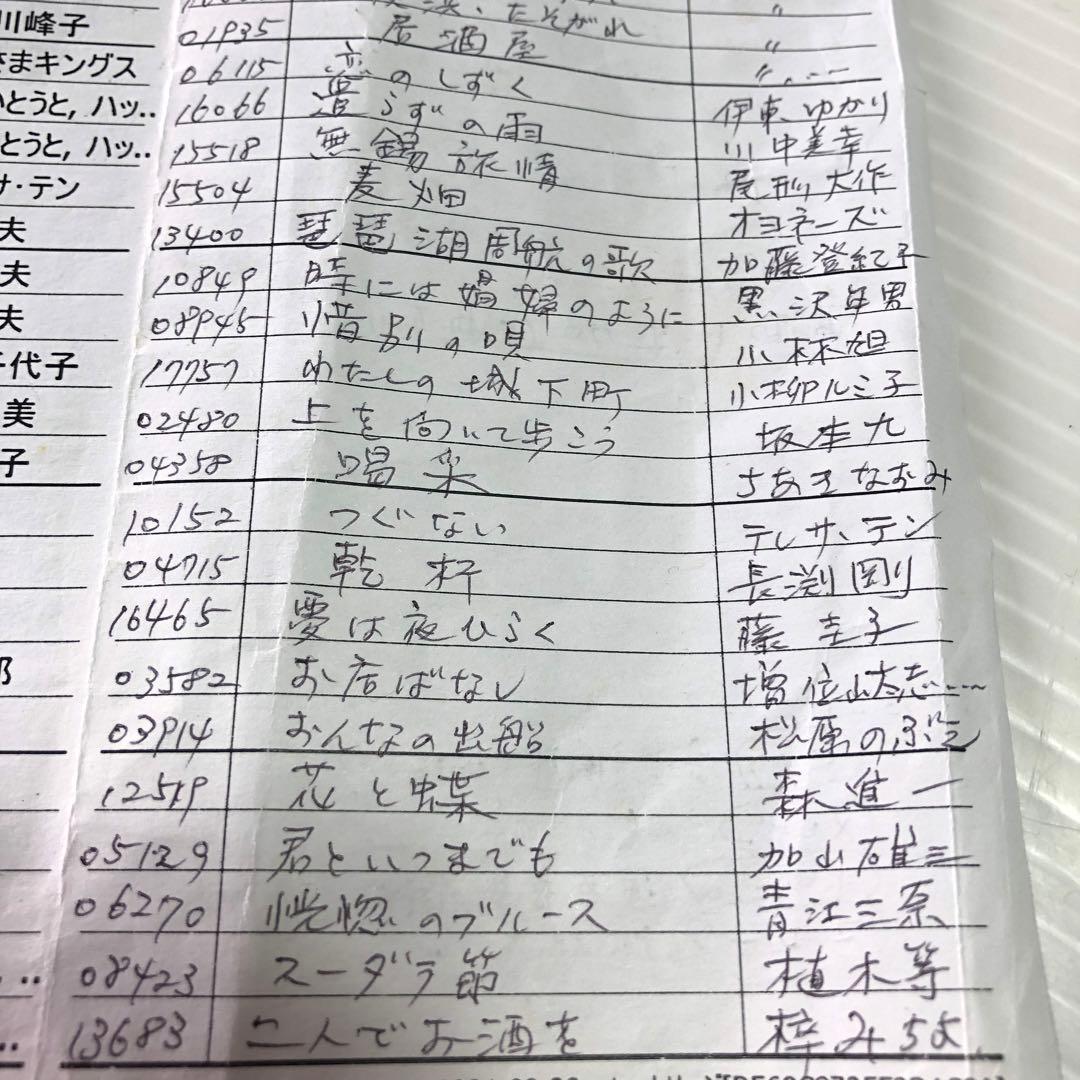 たそがれ 〃
川峰子 01935 居酒屋 〃
さまキングス 06115 恋のしずく 〃....
とうと, ハッ.. 16066 遣らずの雨 伊東ゆかり
とうと, ハッ.. 15518 無錫旅情 川中美幸
サ・テン 15504 麦畑 尾形大作
夫 13400 琵琶湖周航の歌 オヨネーズ
夫 10849 時には娼婦のように 加藤登紀子
夫 08945 惜別の唄 黒沢年男
千代子 17757 わたしの城下町 小林旭
美 02480 上を向いて歩こう 小柳ルミ子
子 04358 喝采 坂本九
10152 つぐない ちあきなおみ
04715 乾杯 テレサ、テン
16465 夢は夜ひらく 長渕剛
03582 お店ばなし 藤圭子
03914 おんなの出船 増位山太志....
12519 花と蝶 松原のぶえ
05129 君といつまでも 森進一
06270 恍惚のブルース 加山雄三
08423 スーダラ節 青江三奈
13683 二人でお酒を 植木等
梓みちよ